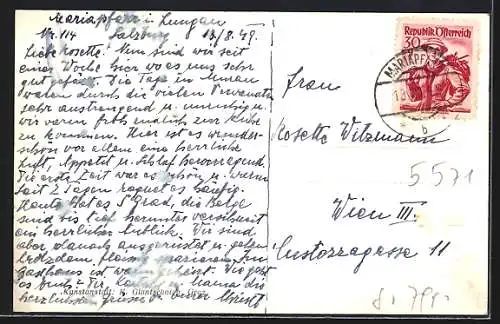 Mariapfarr in Lungau
Nr. 114 Salzburg 13/8. 49.
Liebe Rosette! Nun sind wir seit
einer Woche hier wo es uns sehr
gut gefällt. Die Tage in Murau
waren durch die vielen Verwandten
sehr anstrengend u. unruhig u.
wir waren froh endlich zur Ruhe
zu kommen. Hier ist es wunder-
schön vor allem eine herrliche
Luft, Appetit u. Schlaf hervorragend.
Die erste Zeit war es schön u. warm
seit 2 Tagen regnet es häufig.
Heute hat es 5 Grad, die Berge
sind bis tief herunter verschneit
ein herrlicher Anblick. Wir sind
aber danach ausgerüstet u. gehen
trotzdem fleissig spazieren. Im
Gasthaus ist
es euch
herzlichsten Grüsse
Kunstanstalt: K. Glantschnigg, Graz
Republik Österreich
30
MARIAPFARR
b
Frau
Rosette Witzmann
5571
Wien III.
Custozzagasse 11